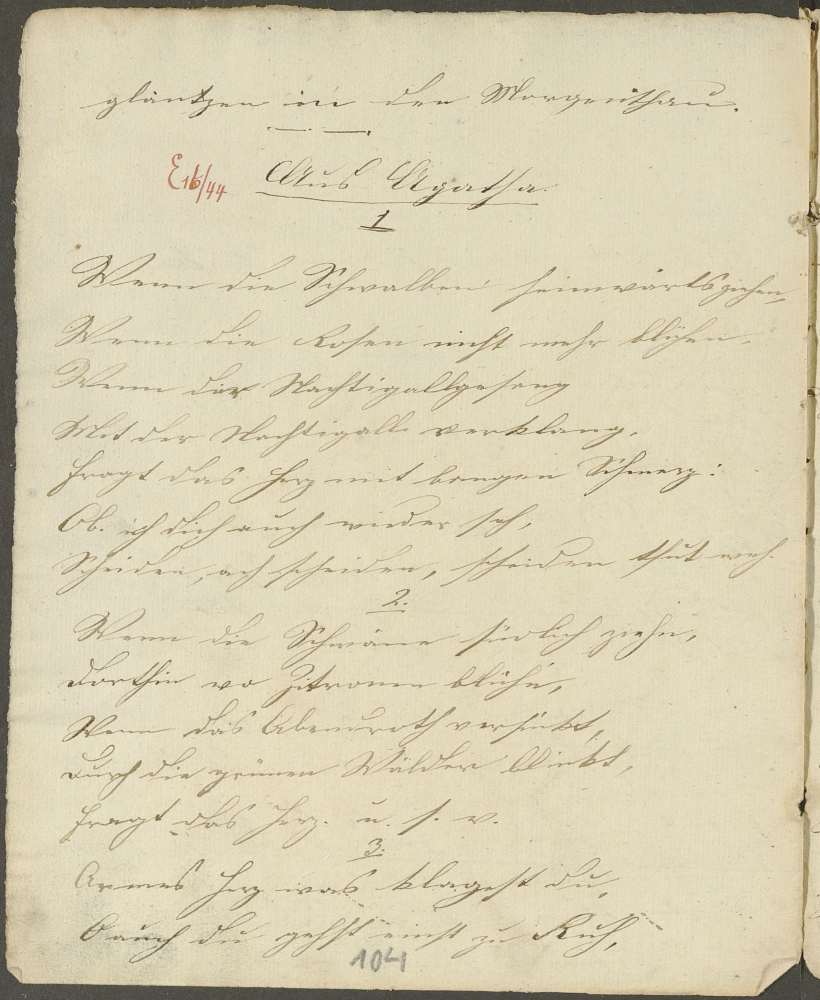 gläntzen in den Morgenthau.
E 16/44 Aus Agatha.
1
Wenn die Schwalben heimwärts ziehen,
Wenn die Rosen nicht mehr blühen,
Wenn der Nachtigallgesang
Mit der Nachtigall verklang,
fragt das Herz mit bangen Schmerz:
Ob. ich dich auch wieder seh,
Scheiden, ach scheiden, scheiden thut weh.
2.
Wenn die Schwäne südlich ziehn,
Dorthin wo Zitronen blühn,
Wenn das Abendroth versinkt,
Durch die grünen Wälder blinkt,
fragt das Herz. u. s. w.
3.
Armes Herz was klagest du,
O auch du gehst einst zu Ruh,
104